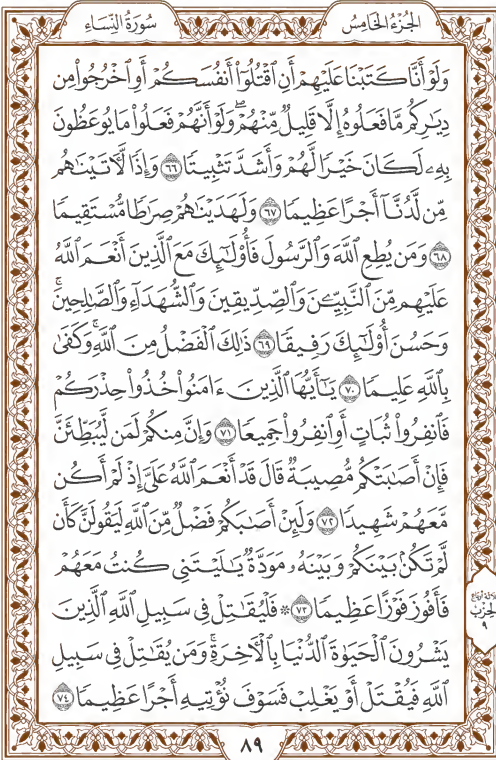 الجُزْءُ الخَامِسُ
سُورَةُ النِّسَاءِ
وَلَوۡ أَنَّا كَتَبۡنَا عَلَيۡهِمۡ أَنِ ٱقۡتُلُوٓاْ أَنفُسَكُمۡ أَوِ ٱخۡرُجُواْ مِن
دِيَٰرِكُم مَّا فَعَلُوهُ إِلَّا قَلِيلٞ مِّنۡهُمۡۖ وَلَوۡ أَنَّهُمۡ فَعَلُواْ مَا يُوعَظُونَ
بِهِۦ لَكَانَ خَيۡرٗا لَّهُمۡ وَأَشَدَّ تَثۡبِيتٗا ٦٦ وَإِذٗا لَّأٓتَيۡنَٰهُم
مِّن لَّدُنَّآ أَجۡرًا عَظِيمٗا ٦٧ وَلَهَدَيۡنَٰهُمۡ صِرَٰطٗا مُّسۡتَقِيمٗا
٦٨ وَمَن يُطِعِ ٱللَّهَ وَٱلرَّسُولَ فَأُوْلَٰٓئِكَ مَعَ ٱلَّذِينَ أَنۡعَمَ ٱللَّهُ
عَلَيۡهِم مِّنَ ٱلنَّبِيِّـۧنَ وَٱلصِّدِّيقِينَ وَٱلشُّهَدَآءِ وَٱلصَّٰلِحِينَۚ
وَحَسُنَ أُوْلَٰٓئِكَ رَفِيقٗا ٦٩ ذَٰلِكَ ٱلۡفَضۡلُ مِنَ ٱللَّهِۚ وَكَفَىٰ
بِٱللَّهِ عَلِيمٗا ٧٠ يَٰٓأَيُّهَا ٱلَّذِينَ ءَامَنُواْ خُذُواْ حِذۡرَكُمۡ
فَٱنفِرُواْ ثُبَاتٍ أَوِ ٱنفِرُواْ جَمِيعٗا ٧١ وَإِنَّ مِنكُمۡ لَمَن لَّيُبَطِّئَنَّ
فَإِنۡ أَصَٰبَتۡكُم مُّصِيبَةٞ قَالَ قَدۡ أَنۡعَمَ ٱللَّهُ عَلَيَّ إِذۡ لَمۡ أَكُن
مَّعَهُمۡ شَهِيدٗا ٧٢ وَلَئِنۡ أَصَٰبَكُمۡ فَضۡلٞ مِّنَ ٱللَّهِ لَيَقُولَنَّ كَأَن
لَّمۡ تَكُنۢ بَيۡنَكُمۡ وَبَيۡنَهُۥ مَوَدَّةٞ يَٰلَيۡتَنِي كُنتُ مَعَهُمۡ
فَأَفُوزَ فَوۡزًا عَظِيمٗا ٧٣ ۞ فَلۡيُقَٰتِلۡ فِي سَبِيلِ ٱللَّهِ ٱلَّذِينَ
يَشۡرُونَ ٱلۡحَيَوٰةَ ٱلدُّنۡيَا بِٱلۡأٓخِرَةِۚ وَمَن يُقَٰتِلۡ فِي سَبِيلِ
ٱللَّهِ فَيُقۡتَلۡ أَوۡ يَغۡلِبۡ فَسَوۡفَ نُؤۡتِيهِ أَجۡرًا عَظِيمٗا ٧٤
الحِزْبُ
٩
٨٩